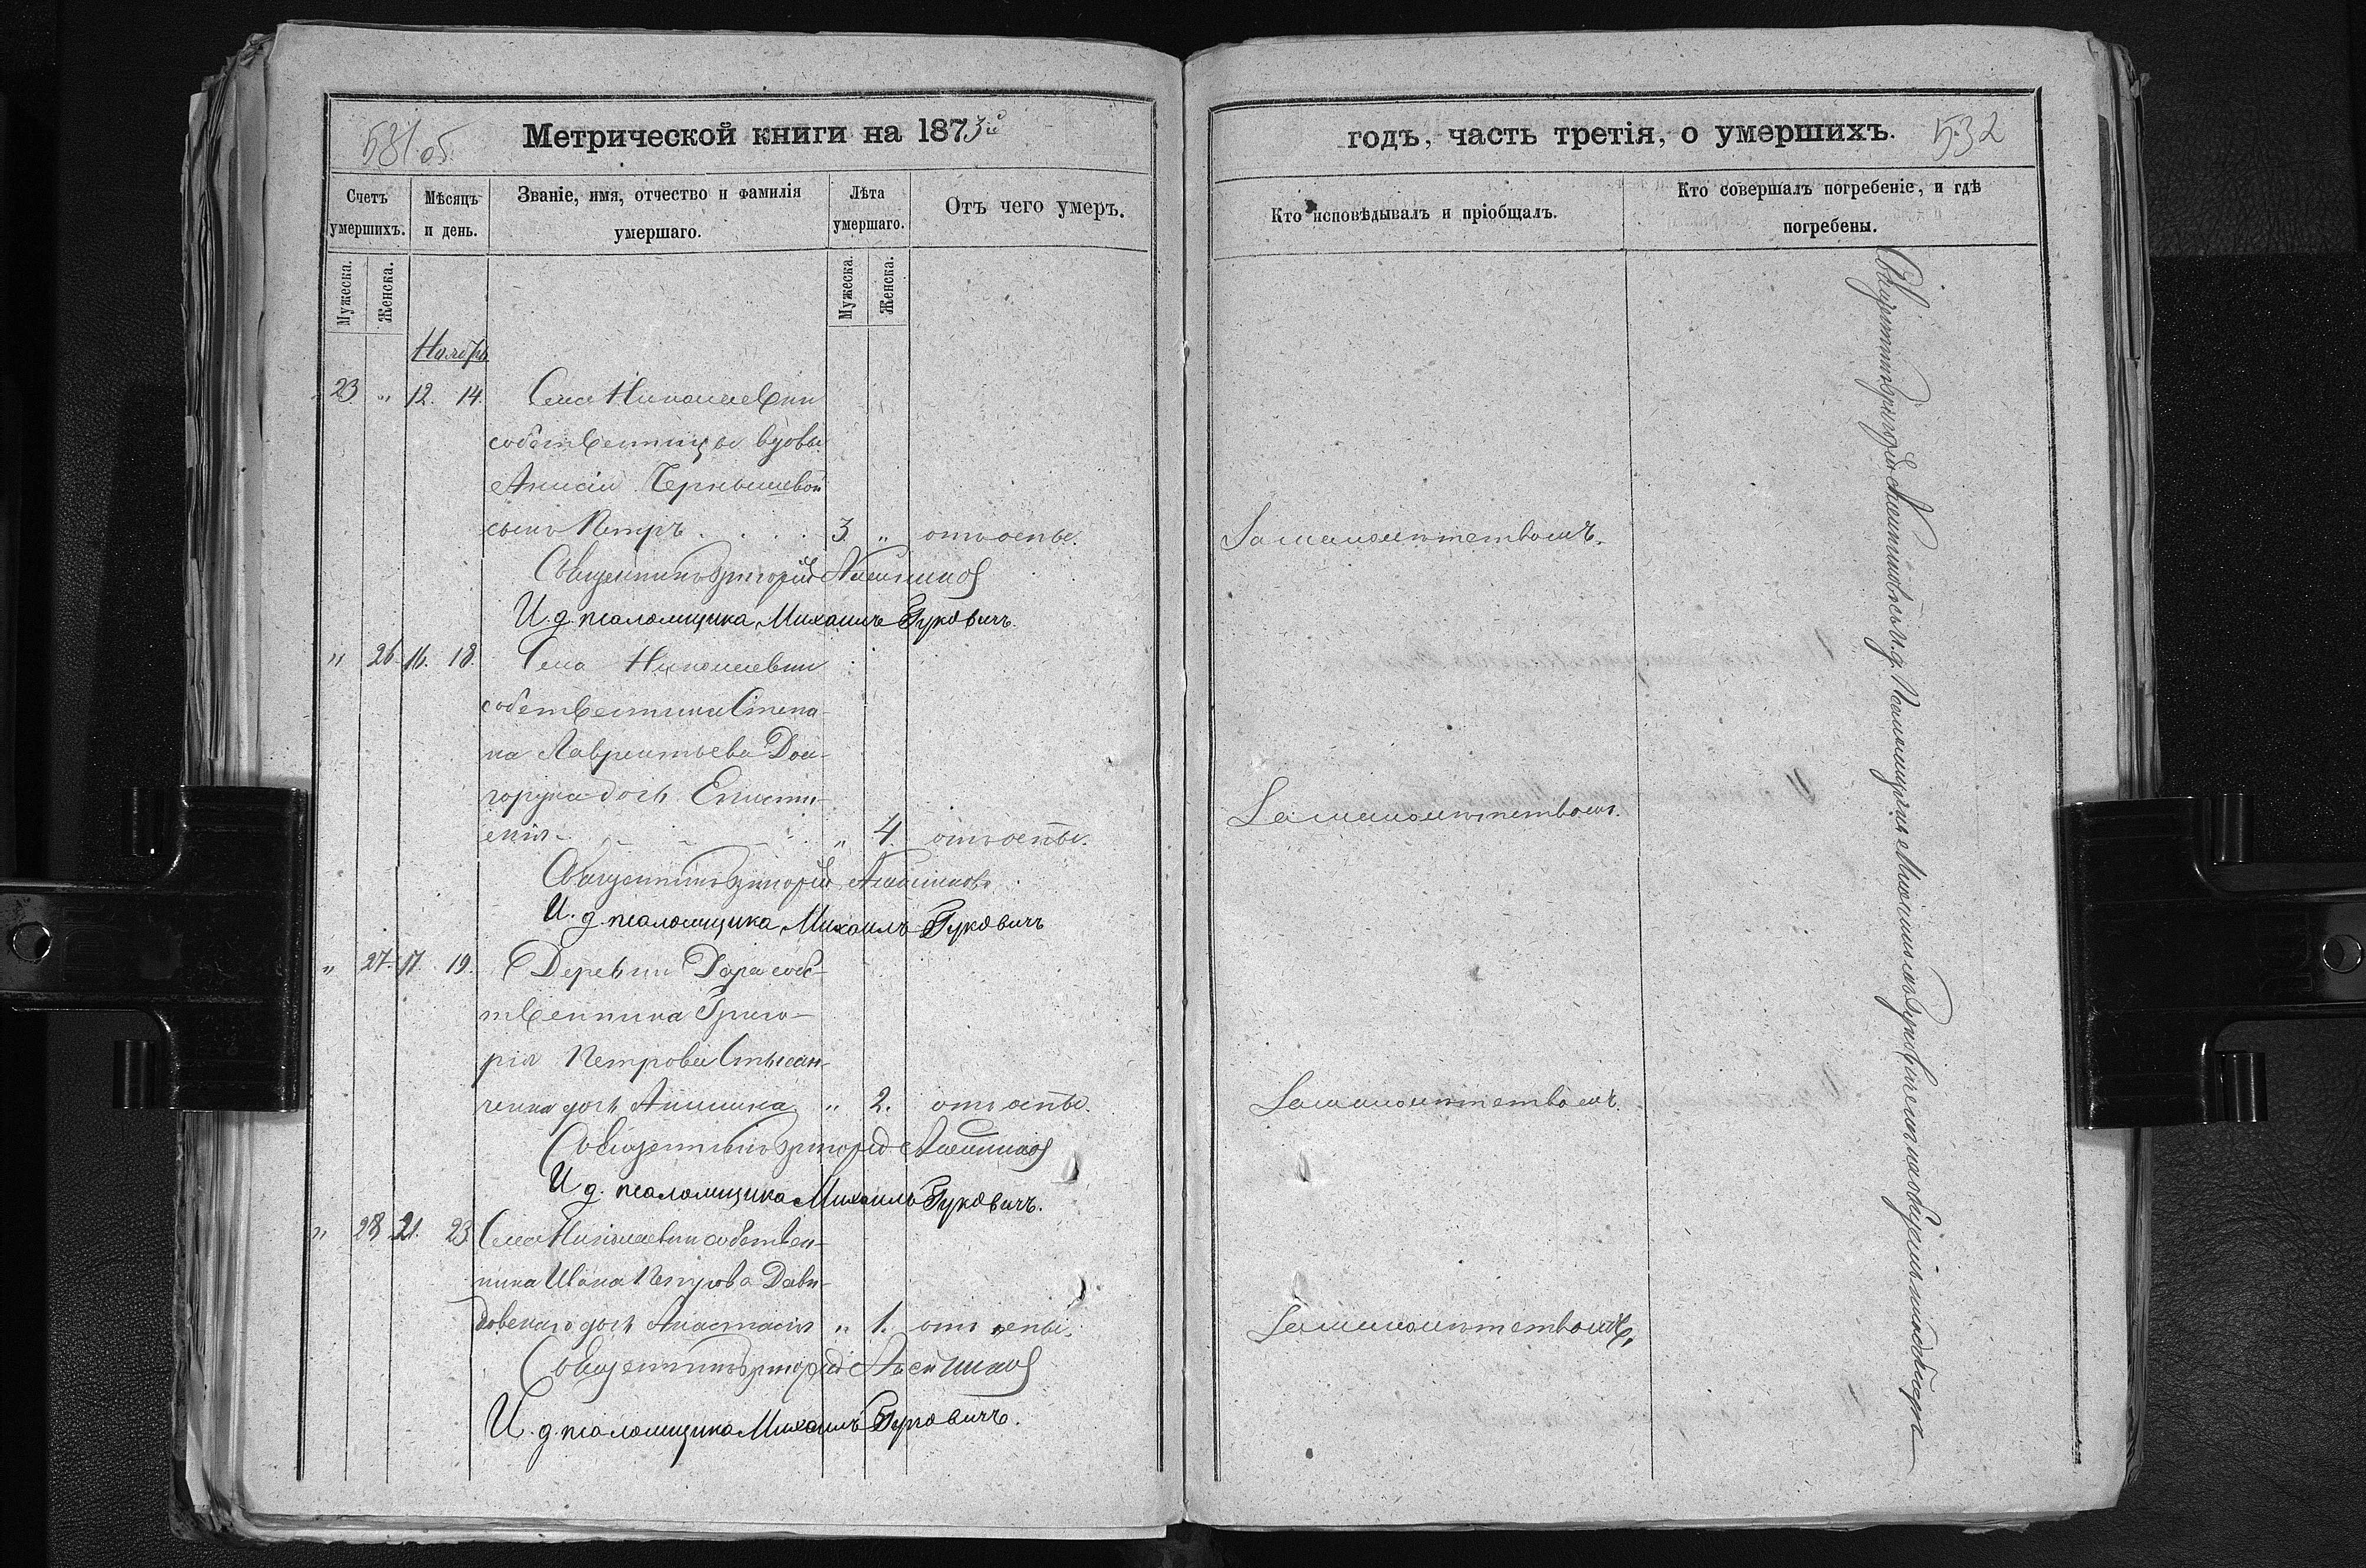 531 об.
Метрической книги на 1873й
Счетъ умершихъ.
Мѣсяцъ и день.
Званіе, имя, отчество и фамилія умершаго.
Лѣта умершаго.
Отъ чего умеръ.
Мужеска.
Женска.
Мужеска.
Женска.
Ноябрь
23 " 12. 14. Села Николаевки
собственницы вдовы
Анисіи Чернышевой
сынъ Петръ . . . . 3. " отъ оспы.
Священникъ Григорій
И. д. псаломщика Михаилъ Буковичъ.
" 26. 16. 18. Села Николаевки
собственника Степа-
на Лаврентьева Дол-
горука дочь
" 4. отъ оспы.
Священникъ Григорій
И. д. псаломщика Михаилъ Буковичъ
" 27. 17. 19. Деревни собс-
твенника Григо-
рія Петрова
дочь " 2. отъ оспы.
Священникъ Григорій
И. д. псаломщика Михаилъ Буковичъ.
" 28 21. 23 Села Николаевки собствен-
ника Ивана Петрова Дави-
довскаго дочь Анастасія " 1. отъ оспы.
Священникъ Григорій
И. д. псаломщика Михаилъ Буковичъ.
годъ, часть третія, о умершихъ.
532
Кто исповѣдывалъ и пріобщалъ.
Кто совершалъ погребеніе, и гдѣ погребены.
За малолѣтствомъ.
За малолѣтствомъ.
За малолѣтствомъ.
За малолѣтствомъ.
Священникъ Григорій съ и. д. Псаломщика Михаиломъ Буковичемъ на общемъ кладбищѣ